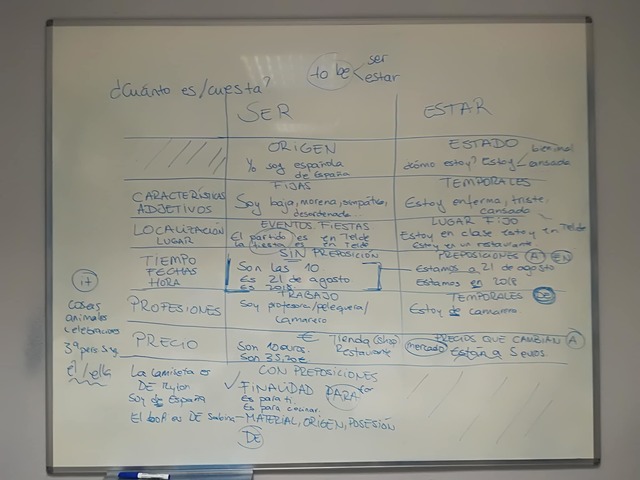 to be ser
estar
¿Cuánto es/cuesta?
SER ESTAR
ORIGEN ESTADO
Yo soy española ¿Cómo estoy? Estoy bien/mal
de España cansada
CARACTERÍSTICAS FIJAS TEMPORALES
ADJETIVOS Soy baja, morena, simpática, Estoy enferma, triste,
desordenada... cansada
LOCALIZACIÓN EVENTOS FIESTAS LUGAR FIJO
LUGAR El partido es en Telde Estoy en clase estoy en Telde
la fiesta es en Telde Estoy en un restaurante
TIEMPO SIN PREPOSICIÓN PREPOSICIONES A EN
FECHAS Son las 10 Estamos a 21 de agosto
HORA Es 21 de agosto Estamos en 2018
Es 2018
PROFESIONES TRABAJO TEMPORALES DE
Soy profesora/peluquera/ Estoy de camarero.
camarero
PRECIO € Tienda (shop) PRECIOS QUE CAMBIAN A
Son 10 euros. Restaurante mercado Están a 5 euros.
Son 35,70 €
it
cosas
animales
celebraciones
3ª pers. sing.
él/ella
CON PREPOSICIONES
La camiseta es FINALIDAD PARA for
DE Nylon Es para ti.
Soy de España Es para cocinar.
El es DE Sabina MATERIAL, ORIGEN, POSESIÓN
DE